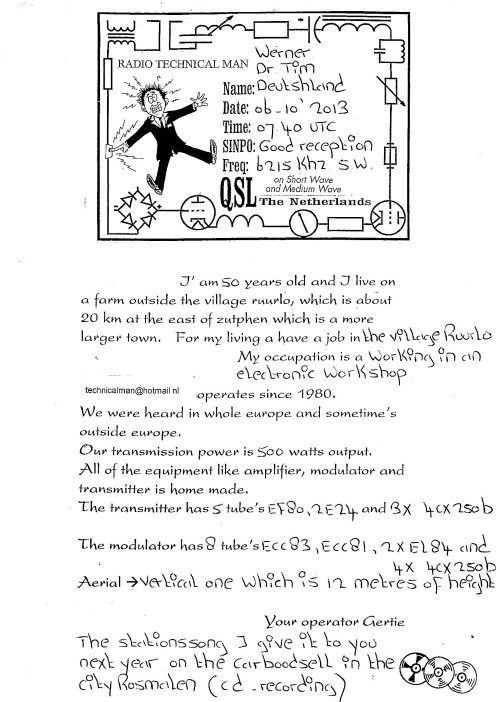 Werner
RADIO TECHNICAL MAN Dr. Tim
Name: Deutshland
Date: 06-10' 2013
Time: 07.40 UTC
SINPO: Good reception
Freq: 6215 Khz S.W.
QSL on Short Wave
and Medium Wave
The Netherlands
I' am 50 years old and I live on
a farm outside the village ruurlo, which is about
20 km at the east of zutphen which is a more
larger town. For my living a have a job in the village Ruurlo
My occupation is a working in an
electronic workshop
technicalman@hotmail nl operates since 1980.
We were heard in whole europe and sometime's
outside europe.
Our transmission power is 500 watts output.
All of the equipment like amplifier, modulator and
transmitter is home made.
The transmitter has 5 tube's EF80, 2E24 and 3X 4CX250b
The modulator has 8 tube's Ecc83, Ecc81, 2X EL84 and
4X 4CX250b
Aerial → vertical one which is 12 metres of height
Your operator Gertie
The stationssong I give it to you
next year on the carboodsell in the
city Rosmalen (cd-recording)